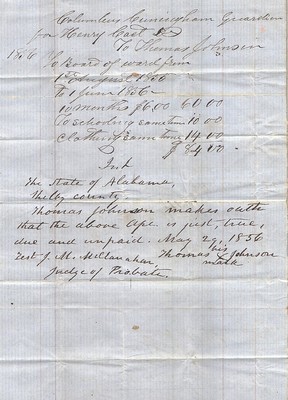 Columbus Cunningham Guardian
for Henry Cast Dr
To Thomas Johnson
1856 To Board of ward from
1st August 1855
to 1 June 1856
10 months $6.00 60.00
To schooling same time 10.00
Clothing same time 14.00
$84.00
The State of Alabama,
Shelby county.
Thomas Johnson makes oath
that the above apc is just, true,
due and unpaid. May 27, 1856
his
Test J. M. McClanahan Thomas X Johnson
mark
Judge of Probate.